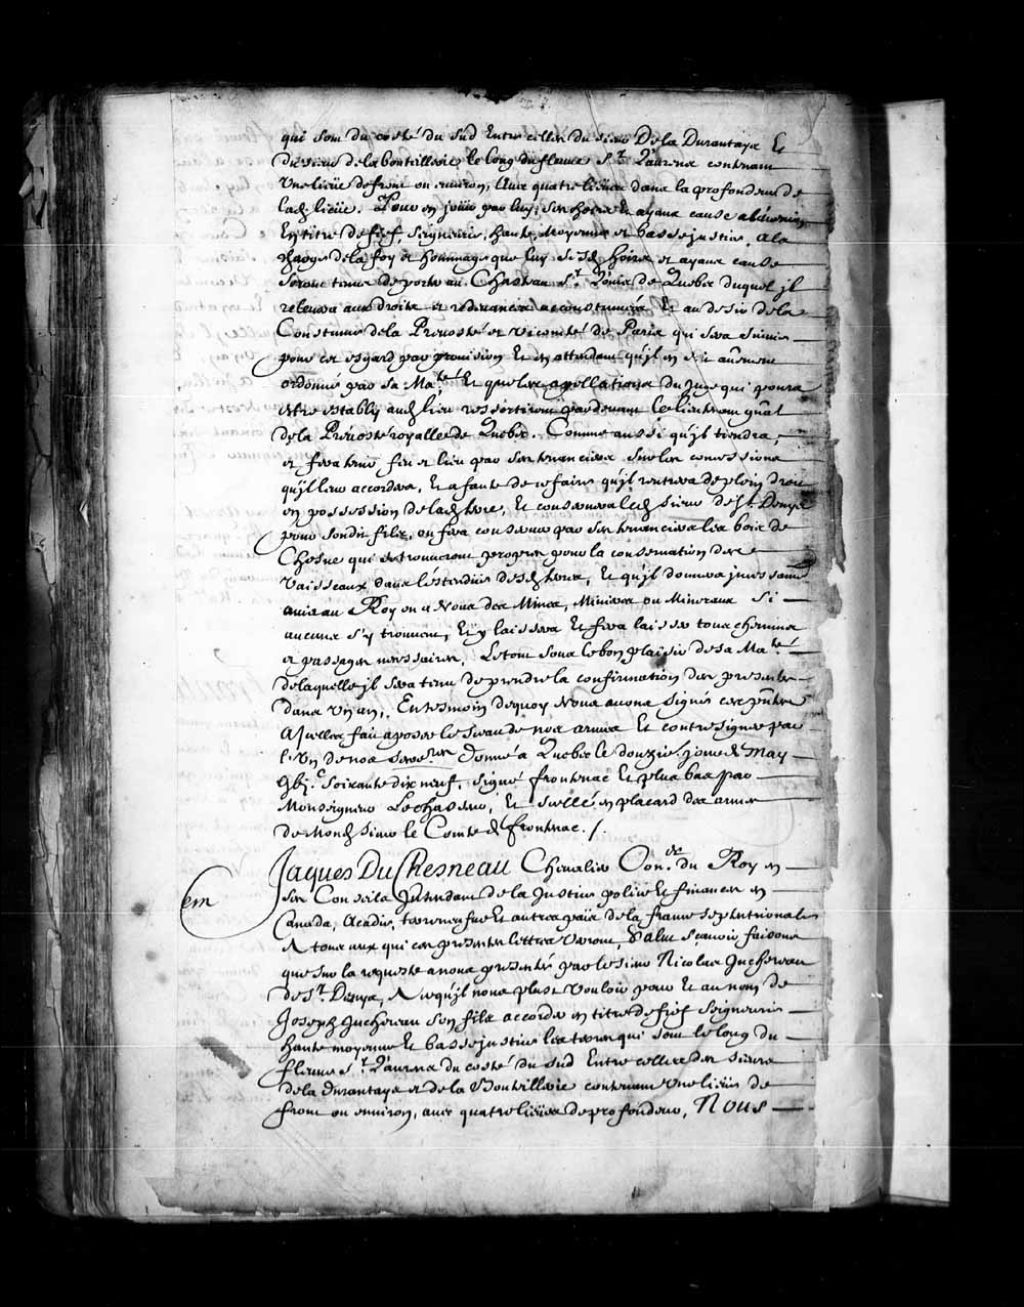 qui sont du costé du sud Entre celles du sieur De la Durantaye Et
du sieur de la bouteillerie le long du fleuue St Laurens contenant
vne lieüe de front ou enuiron, Auec quatre lieües dans la profondeur de
lad. lieüe. Pour en jouir par luy, ses hoirs Et ayans cause
En titre de fief, seigneurie, haute, Moyenne et basse justice, A la
charge de la foy et hommage que luy sesd. hoirs et ayans cause
seront tenus de porter au Chasteau St Louis de Quebec duquel jl
releuera aux droits et redeuances accoustumés Et au desir de la
Coustume de la Preuosté et vicomté de Paris qui sera suiuie
pour cet esgard par prouision Et en attendant qu'jl en soit autrement
ordonné par sa Maté. Et que les apellations du Juge qui poura
estre estably aud. lieu ressortiront pardeuant le lieutenant gñal
de la Preuosté royalle de Quebec. Comme aussi qu'jl tiendra,
et fera tenir feu et lieu par ses tenanciers sur les concessions
qu'jl leur accordera, Et a faute de ce faire qu'jl rentrera de plein droit
en possession de lad. terre, Et conseruera led. sieur de St Denys
pour sondit filz, ou fera conseruer par ses tenanciers les bois de
Chesne qui se trouueront propres pour la construction des
Vaisseaux dans l'estendüe desd. terres, Et qu'jl donnera jncessament
auis au Roy ou a Nous des Mines, Minieres ou Mineraux Si
aucuns s'y trouuent, Et y laissera Et fera laisser tous chemins
et passages necessaires, Le tout sous le bon plaisir de sa Maté.
de laquelle jl sera tenu de prendre la confirmation des presentes
dans vn an,. En tesmoin de quoy Nous auons signé ces pñtes
A jcelles fait aposer le sceau de nos armes Et contresigner par
l'Vn de nos secres. Donné a Quebec le douzie. jour de May
gbjc. soixante dix neuf, signé frontenac Et plus bas par
Monseigneur Lechasseur, Et scellé en placard des armes
de Mond. Sieur le Comte de frontenac ./.
Jaques Du Chesneau Cheualier Coner. du Roy en
em
ses Conseils Jntendant de la Justice police Et finances en
Canada, Acadie, terreneufue Et autres païs de la france septentrionale
A tous ceux qui ces presentes lettres verront, Salut Sçauoir faisons
que sur la requeste a nous presentée par le sieur Nicolas Juchereau
de St. Denys, A ce qu'jl nous plust vouloir pour Et au nom de
Joseph Juchereau son filz accorder en titre de fief Seigneurie
haute moyenne Et basse justice les terres qui sont le long du
fleuue St Laurens du costé du sud Entre celles des sieurs
de la Durantaye et de la Bouteillerie contenant vne lieüe de
front ou enuiron, auec quatre lieües de profondeur, Nous